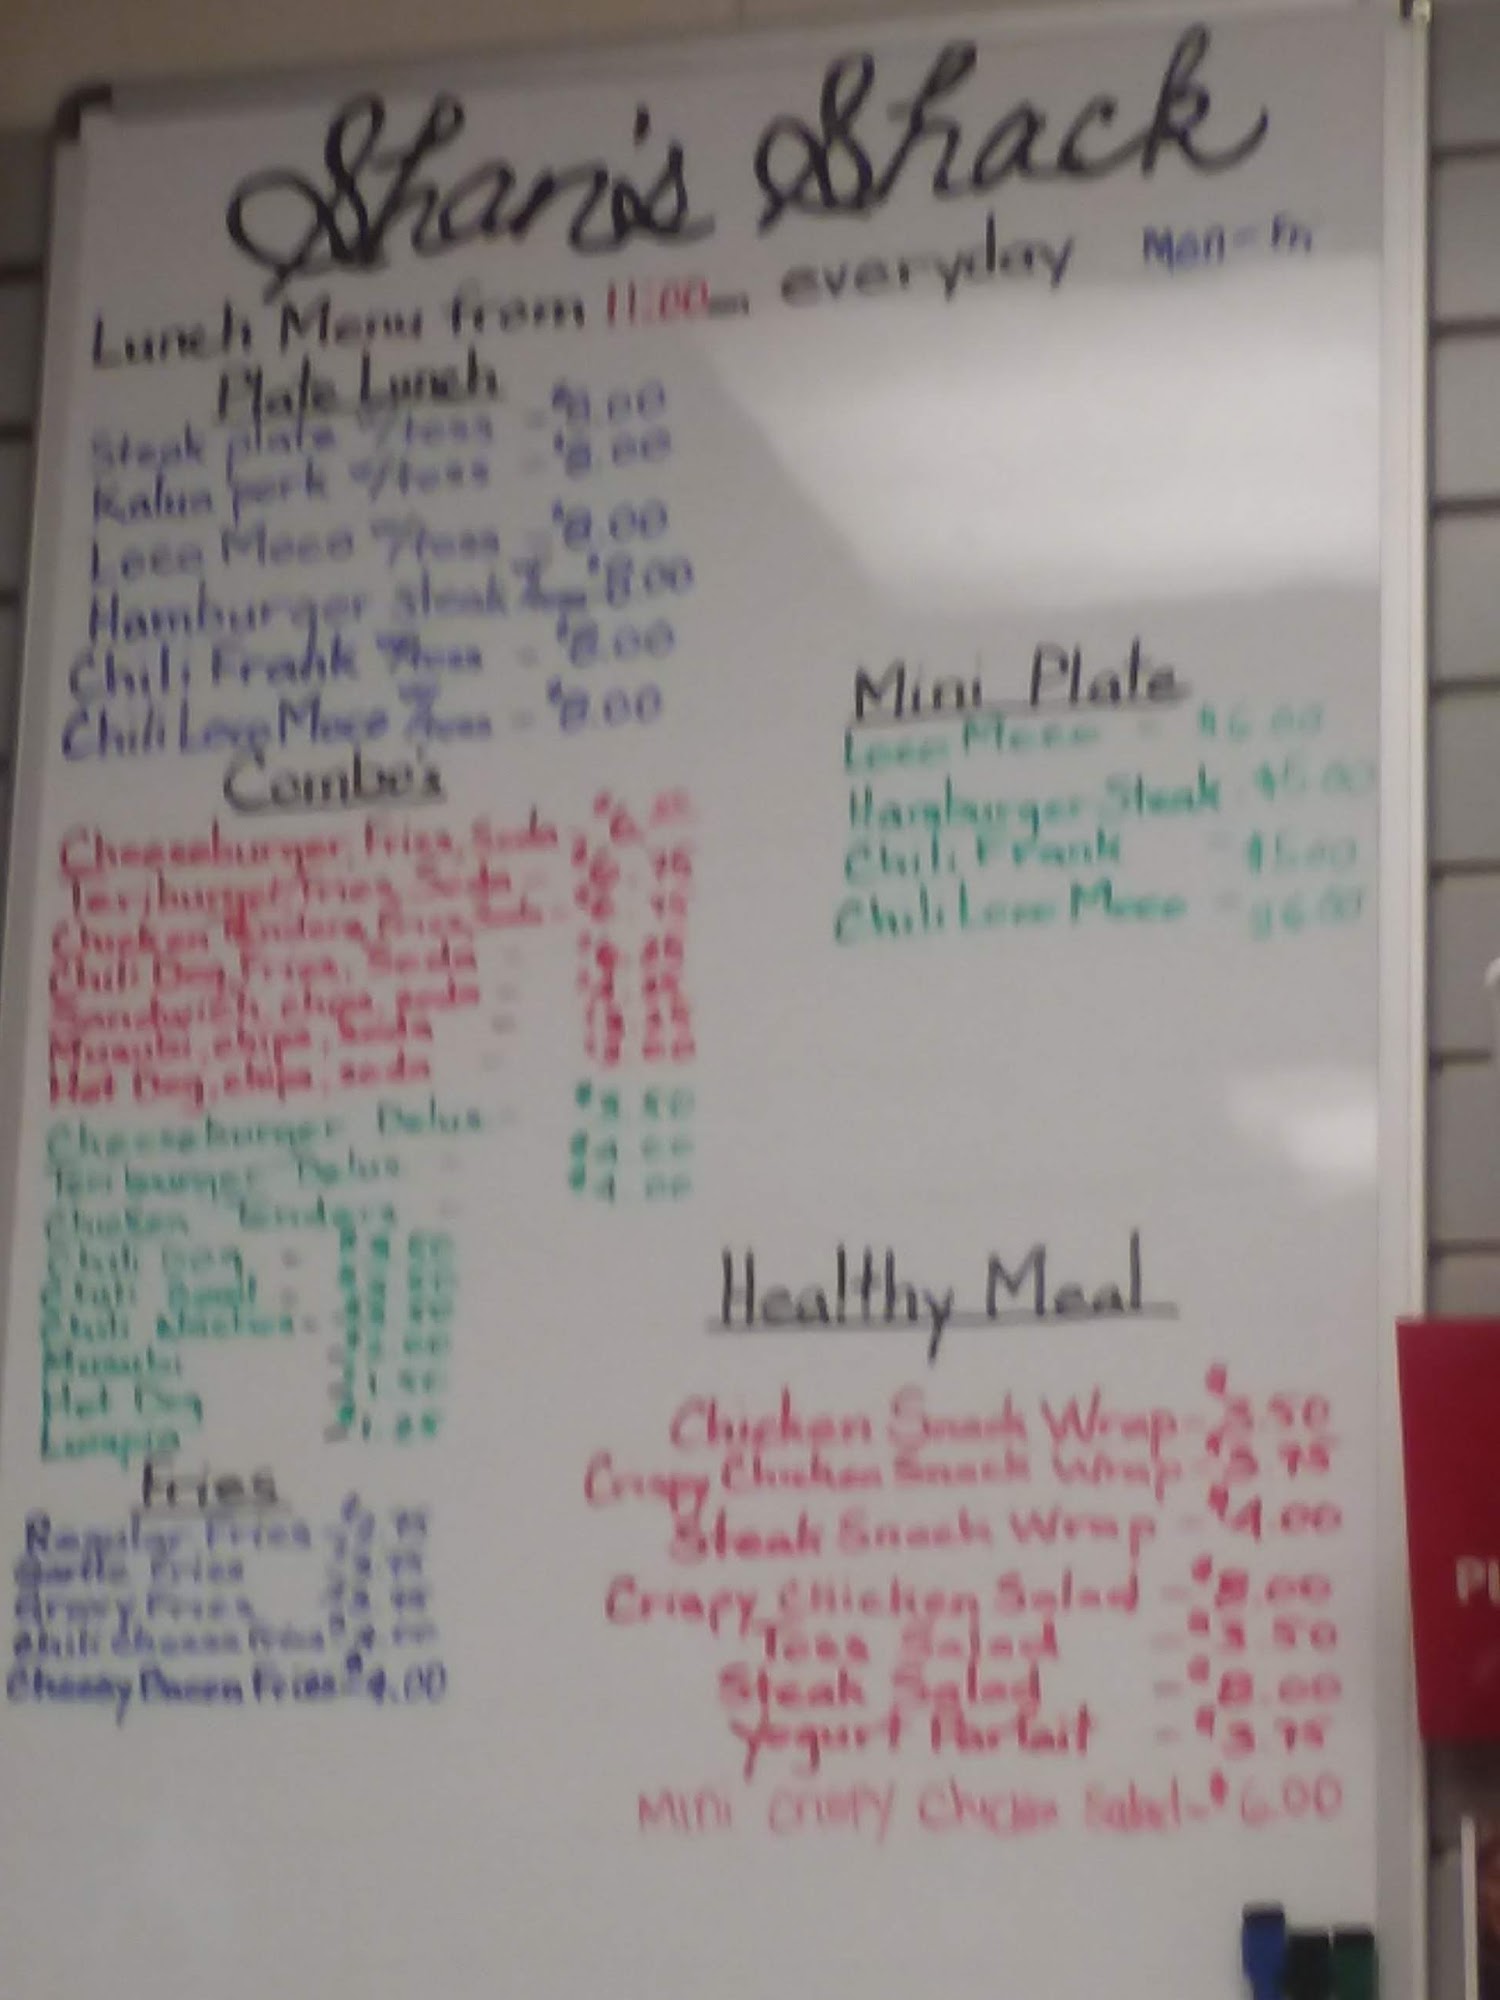 Shan's Shack
Lunch Menu from 11:00am everyday Mon-Fri
Plate Lunch
Steak plate w/toss - $8.00
Kalua pork w/toss - $8.00
Loco Moco w/toss - $8.00
Hamburger steak w/toss $8.00
Chili Frank w/toss - $8.00
Chili Loco Moco w/toss - $8.00
Combo's
Cheeseburger, Fries, Soda -
Teriburger, Fries, Soda - $6.75
Chicken Tenders, Fries, Soda - $6.75
Chili Dog, Fries, Soda -
Sandwich, chips, soda -
Musubi, chips, soda -
Hot Dog, chips, soda -
Cheeseburger Delux - $3.50
Teriburger Delux - $4.00
Chicken Tenders - $4.00
Chili Dog -
Chili Bowl -
Chili Nachos -
Musubi
Hot Dog $1.50
Lumpia $1.25
Fries
Regular Fries $2.75
Garlic Fries $3.75
Gravy Fries $3.75
Chili Cheese Fries $4.00
Cheesy Bacon Fries - $4.00
Mini Plate
Loco Moco - $6.00
Hamburger Steak $5.00
Chili Frank - $5.00
Chili Loco Moco - $6.00
Healthy Meal
Chicken Snack Wrap - $3.50
Crispy Chicken Snack Wrap - $3.75
Steak Snack Wrap - $4.00
Crispy Chicken Salad - $8.00
Toss Salad - $3.50
Steak Salad - $8.00
Yogurt Parfait - $3.75
Mini Crispy Chicken Salad - $6.00